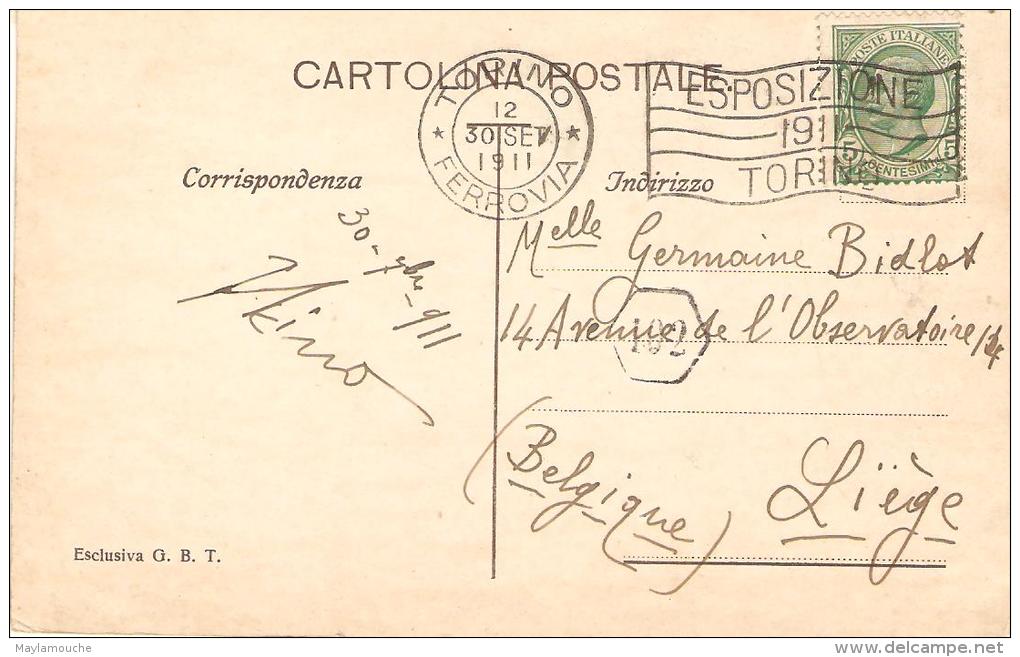 CARTOLINA POSTALE.
TORINO
12
30 SET
1911
FERROVIA
ESPOSIZIONE
1911
TORINO
POSTE ITALIANE
5 CENTESIMI 5
Corrispondenza
Indirizzo
30-7bre-911
Melle Germaine Bidlot
14 Avenue de l'Observatoire
192
(Belgique) Liège
Esclusiva G. B. T.
Maylamouche
www.delcampe.net